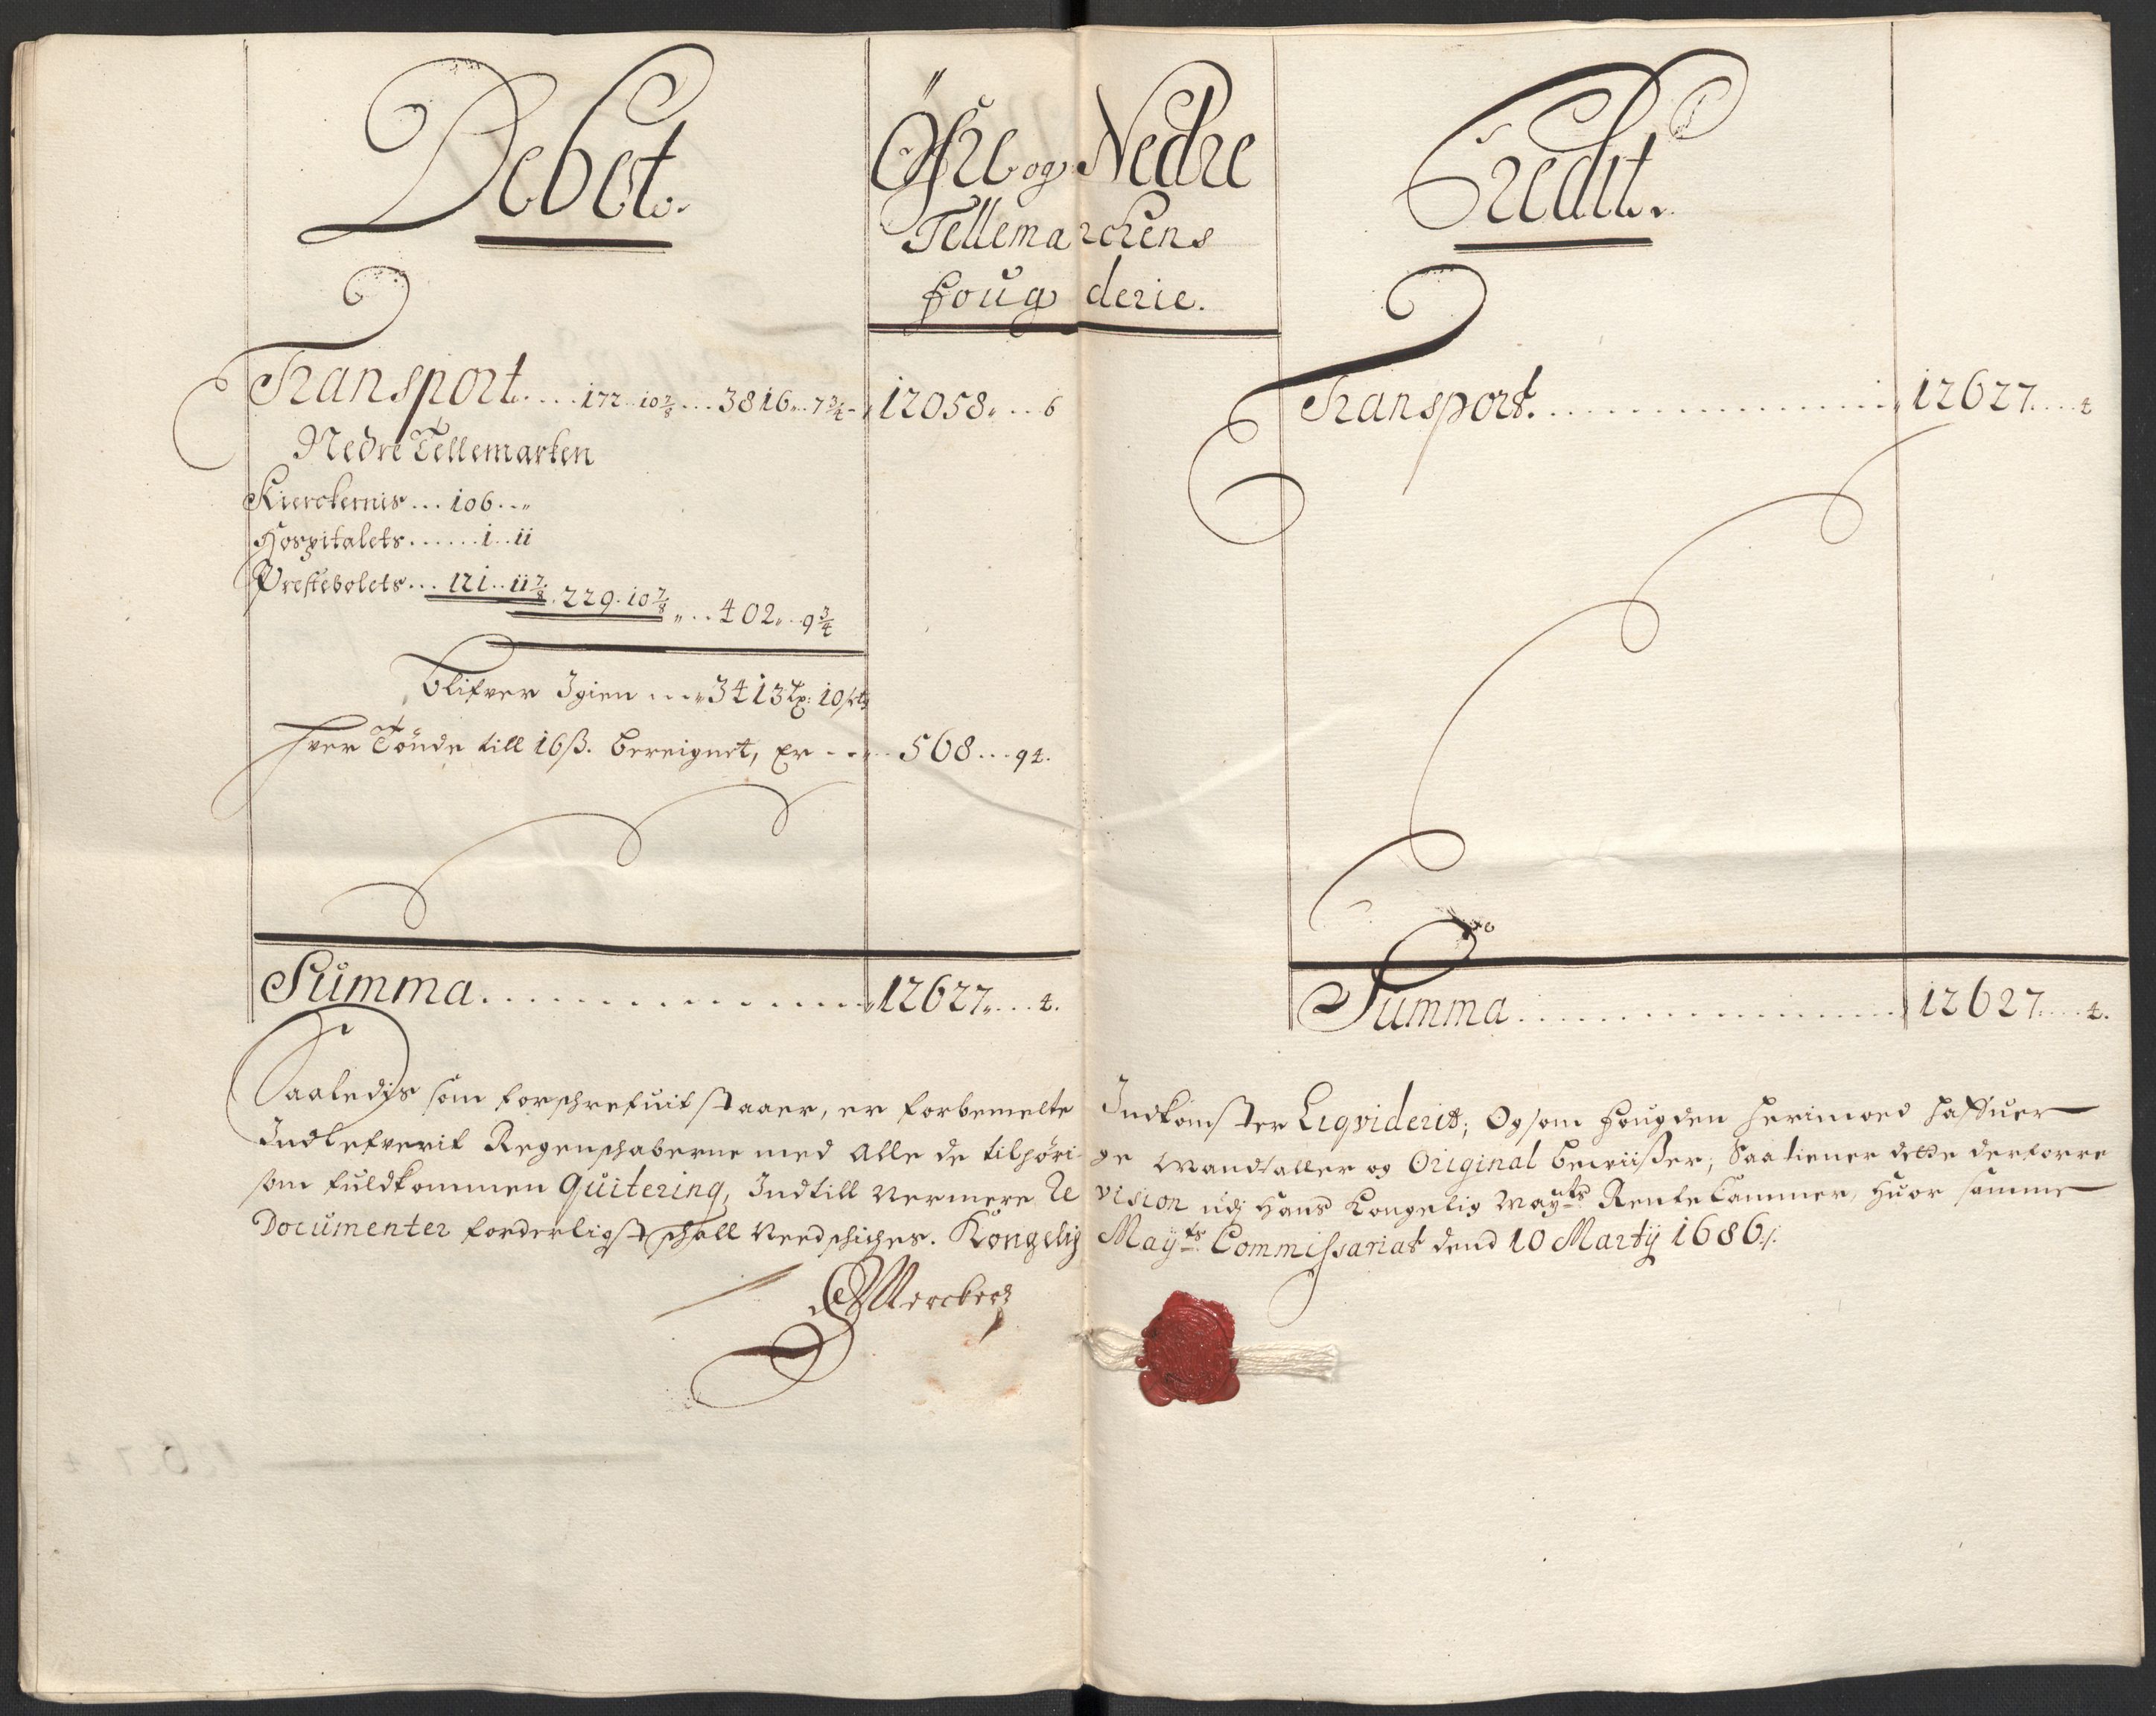 Debet.
Öfre og Nedre
Tellemarckens
fougderie.
Credit.
Transport.... 172..10 7/8 ... 3816.. 7 3/4 - 12058,...6
Nedre Tellemarken
Kierckernis... 106..„
Hospitalets...... 1..11
Prestebolets... 121..11 7/8. 229.10 7/8 „... 402„..9 3/4
Blifver Igien ...„ 3413 Tr: 10 sts
hver Tönde till 16 ß. bereignet, Er - - „.. 568...94.
Summa................ 12627„....4.
Transport................ 12627.....4
Summa.................... 12627.....4.
Saaledis som forschrefuit staaer, er forbemelte Indkomster Liqviderit; Og som fougden herimoed haffuer
Indlefverit Regenschaberne med Alle de tilhörige Mandtaller og Original beviißer; Saa tiener dette derforre
som fuldkommen Quitering, Indtill Nermere Revision udj Hans Kongelig May:ts Rente Cammer, huor samme
Documenter forderligst schall Needschiches. Kongelig May:ts Commissariat dend 10 Martÿ 1686/.
Merckers